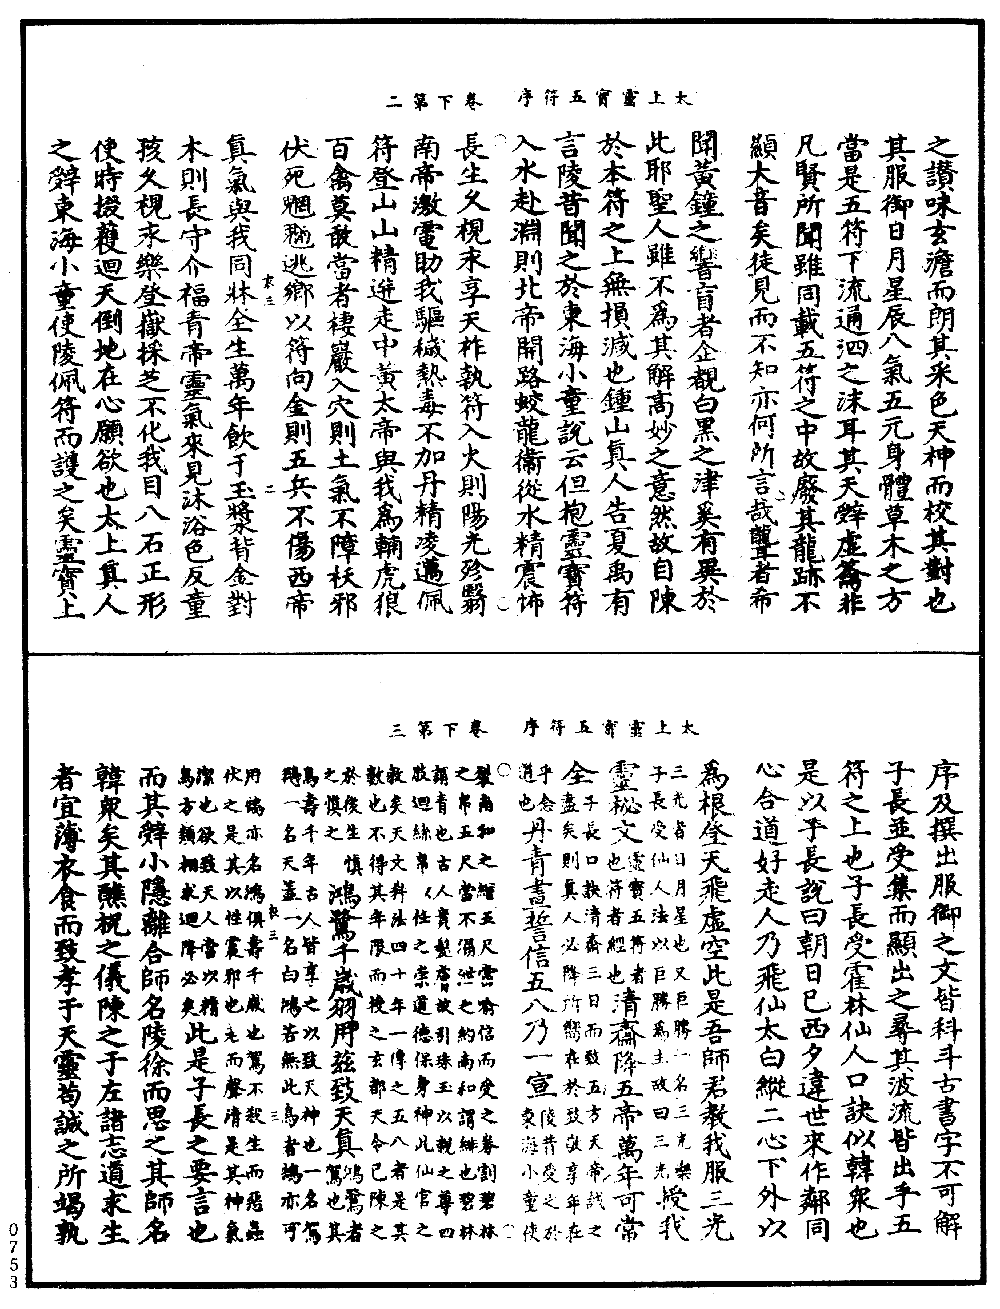 太上靈寶五符序　卷下第二
之讚味玄澹而朗其采色天神而校其對也
其服御日月星辰八氣五元身體草木之方
當是五符下流通泗之沫耳其天辤虛籥非
凡賢所聞雖同載五符之中故廢其龍跡不
顯大音矣徒見而不知亦何所言哉聾者希
聞黃鐘之響盲者企覩白黑之津奚有異於
此耶聖人雖不為其解高妙之意然故自陳
於本符之上無損減也鍾山真人告夏禹有
言陵昔聞之於東海小童說云但抱靈寶符
入水赴淵則北帝開路蛟龍衞從水精震怖
長生久視永享天祚執符入火則陽光殄翳
南帝激電助我驅穢熱毒不加丹精凌邁佩
符登山山精迸走中黃太帝與我為輔虎狼
百禽莫敢當者棲巖入穴則土氣不障袄邪
伏死魍魎逃鄉以符向金則五兵不傷西帝
真氣與我同牀全生萬年飲于玉漿背金對
木則長守介福青帝靈氣來見沐浴色反童
孩久視永樂登嶽採芝不化我目八石正形
使時授護迴天倒地在心願欲也太上真人
之辤東海小童使陵佩符而護之矣靈寶上
衣三
二
太上靈寶五符序　卷下第三
序及撰出服御之文皆科斗古書字不可解
子長並受集而顯出之尋其波流皆出乎五
符之上也子長受霍林仙人口訣似韓衆也
是以子長說曰朝日已西夕違世來作鄰同
心合道好走人乃飛仙太白縱二心下外以
為根登天飛虛空此是吾師君教我服三光
三光者日月星也又巨勝一名三光
子長受仙人法以巨勝為主故曰三光
授我
靈秘文靈寶五符者也符者經也清齋降五帝萬年可常
子長口訣清齋三日而致五方天帝試之
全盡矣則真人必降所嚮在於致敬享年在
乎念道也丹青畫誓信五八乃一宣陵昔受之於東海小童使
裂南和之繒五尺雲喻信而受之券割碧林
之帛五尺當不漏泄之約南和謂緋也碧林
謂青也古人貴髮膚故引珠玉以親之尊四
肢迴絲帛以任之崇道德保身神此仙官之
教矣天文科法四十年一傳之五八者是其
數也不得其年限而授之玄都天令已陳之
於後生慎之慎之鴻鷺千歲羽用兹致天真鴻鷺者
鳥壽千年古人皆享之以致天神也一名鴛
鴇一名天蓋一名白鴻若無此鳥者鴇亦可
用鴇亦名鴻俱壽千歲也鴛不殺生而惡蟲
伏之是其以性震邪也老而聲清是其神氣
潔也欲致天人當以精
鳥方類相求迴降必矣此是子長之要言也
而其辤小隱離合師名陵徐而思之其師名
韓衆矣其醮祝之儀陳之于左諸志道求生
者宜薄衣食而致孝于天靈苟誠之所竭孰
衣三
三
0753